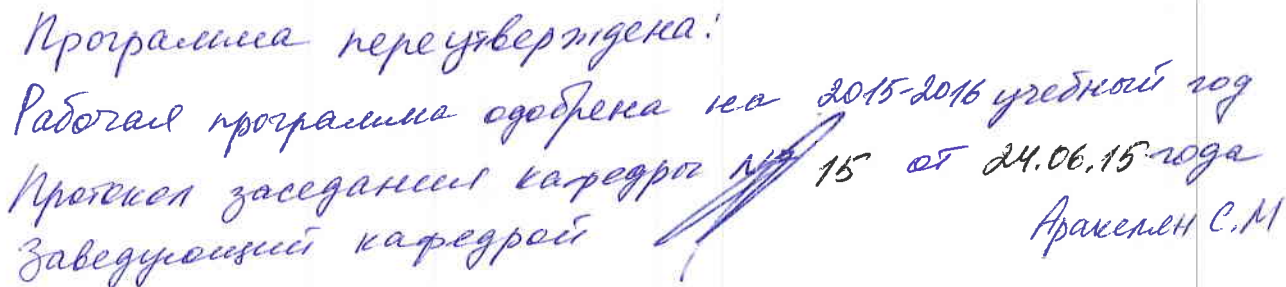 Программа переутверждена:
Рабочая программа одобрена на 2015-2016 учебный год
Протокол заседания кафедры № 15 от 24.06.15 года
Заведующий кафедрой Аракелян С.М